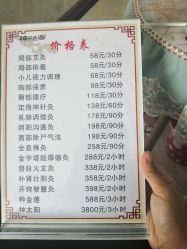 价格表
局部艾灸 58元/30分
局部排毒 58元/30分
小儿视力调理 68元/30分
胸部保养 98元/30分
臀部理疗 118元/30分
定海神针灸 138元/60分
乳腺调理灸 178元/60分
阴阳沟通灸 198元/90分
西部除尸气法 198元/90分
全息推灸 258元/90分
金字塔能厚德灸 288元/2小时
督脉火龙灸 338元/2小时
补肾壮阳灸 358元/2小时
开启智慧灸 398元/2小时
种金莲 588元/3小时
种太阳 3800元/3小时